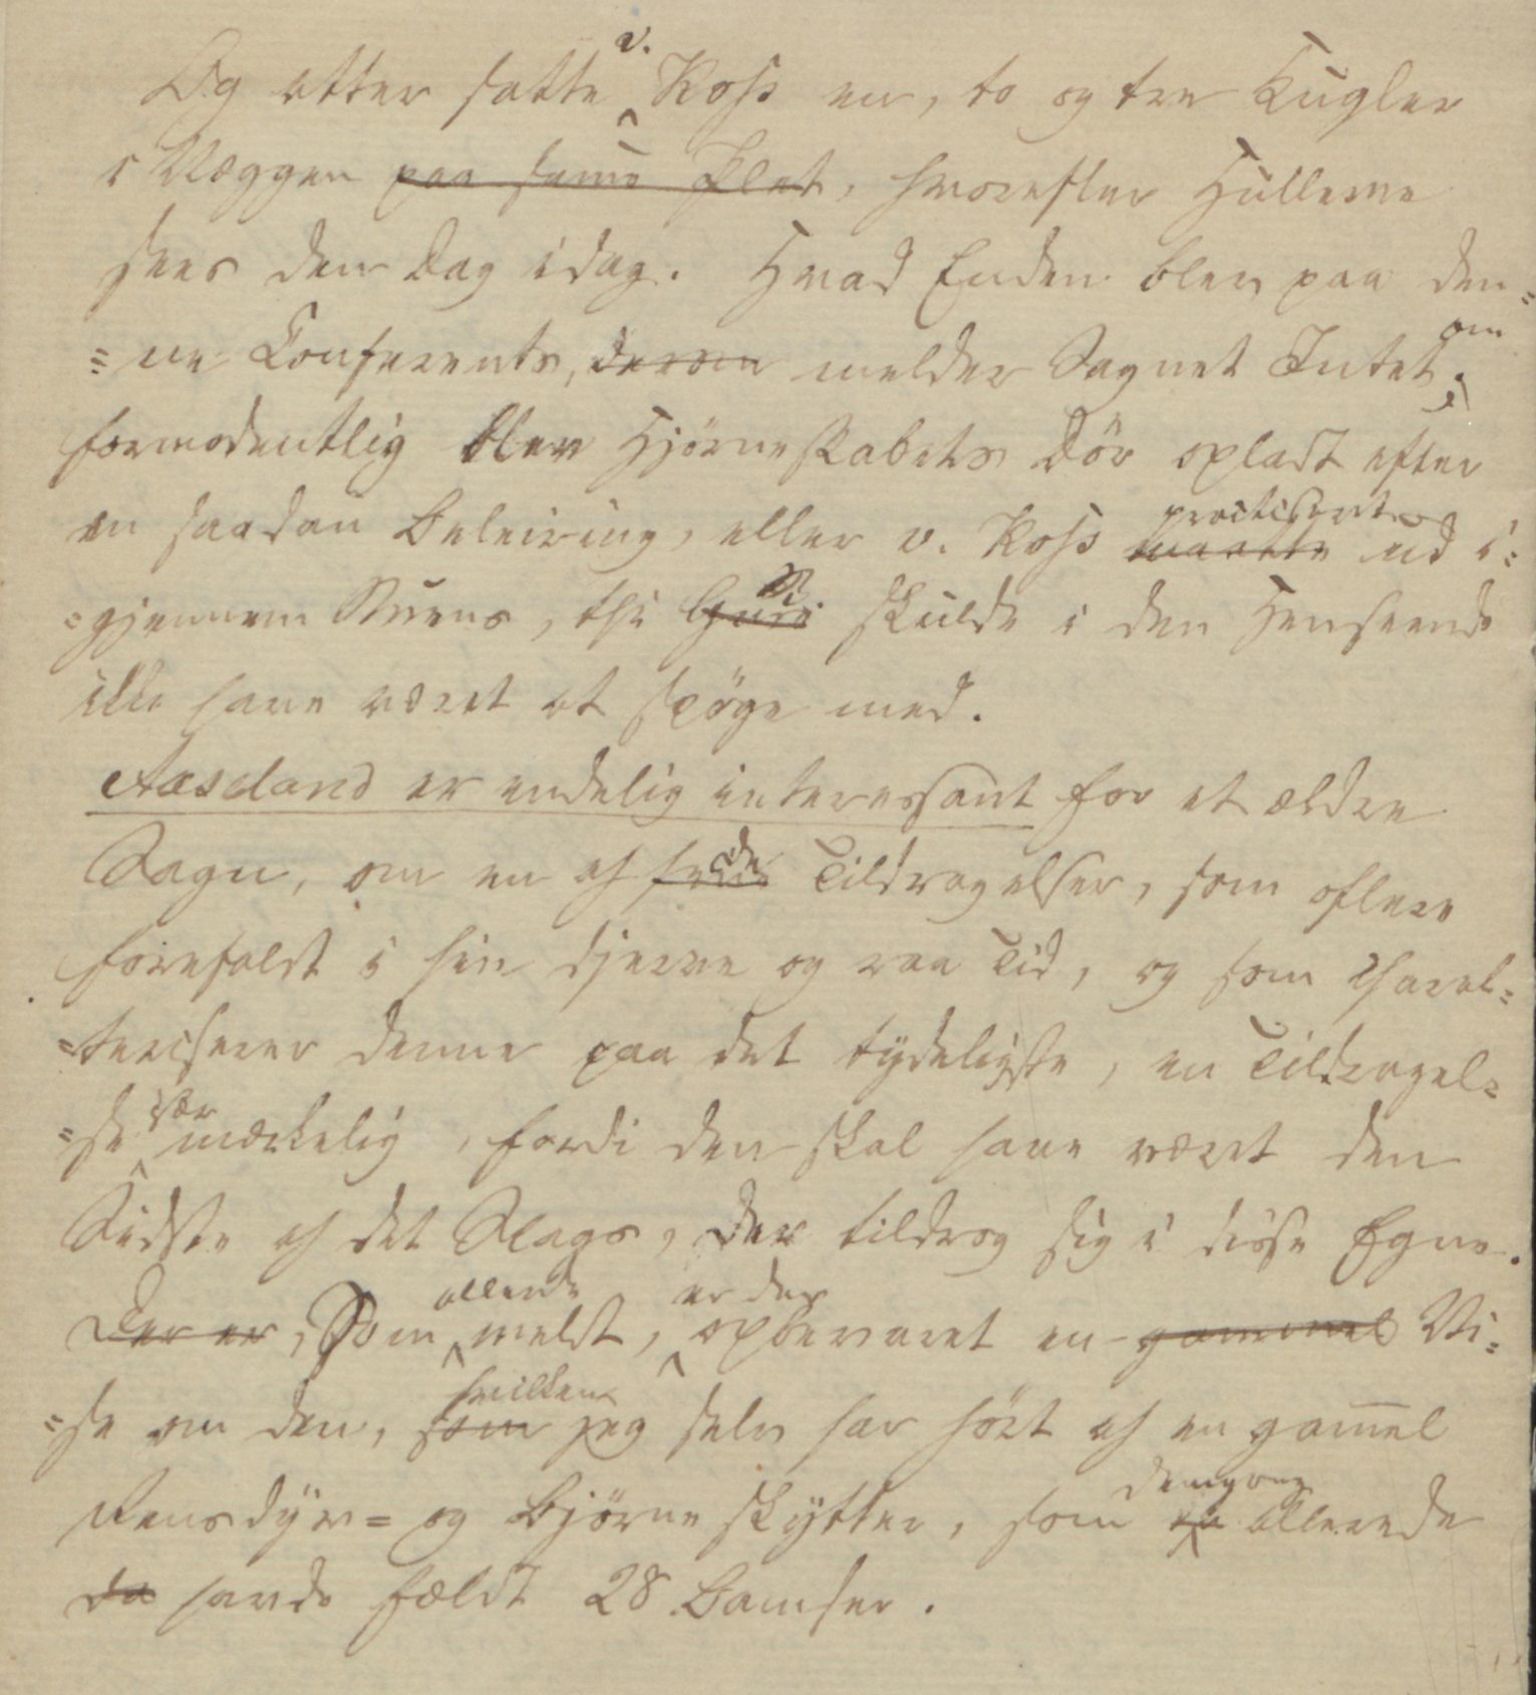 Og atter satte v. Koss en, to og tre Kugler
i Væggen paa samme Plet, hvorefter Hullerne
sees den Dag idag. Hvad Enden blev paa den=
=ne Conferents, derom melder Sagnet Intet om;
formodentlig blev Hjørneskabets Dör opladt efter
en saadan Beleiring, eller v. Koss practiseret maatte ud i=
=gjennem Ruens, thi skulde i den Henseende
ikke have været at spöge med.
Aaseland er endelig interessant for et ældre
Sagn, om en af de Tildragelser, som oftere
forefaldt i hin djerve og raa Tid, og som charak=
=teriserer denne paa det tydeligste, en Tildragel=
=se mærkelig, fordi den skal have været den
Sidste af det Slags, der tildrog sig i disse Egne.
Der er, Som allerede meldt, er der opbevaret en gammel Vi=
=se om den, som hvilken jeg selv har hört af en gam̅el
Rensdyr= og Björneskytter, som dengang allerede
da havde fældt 28 Bamser.